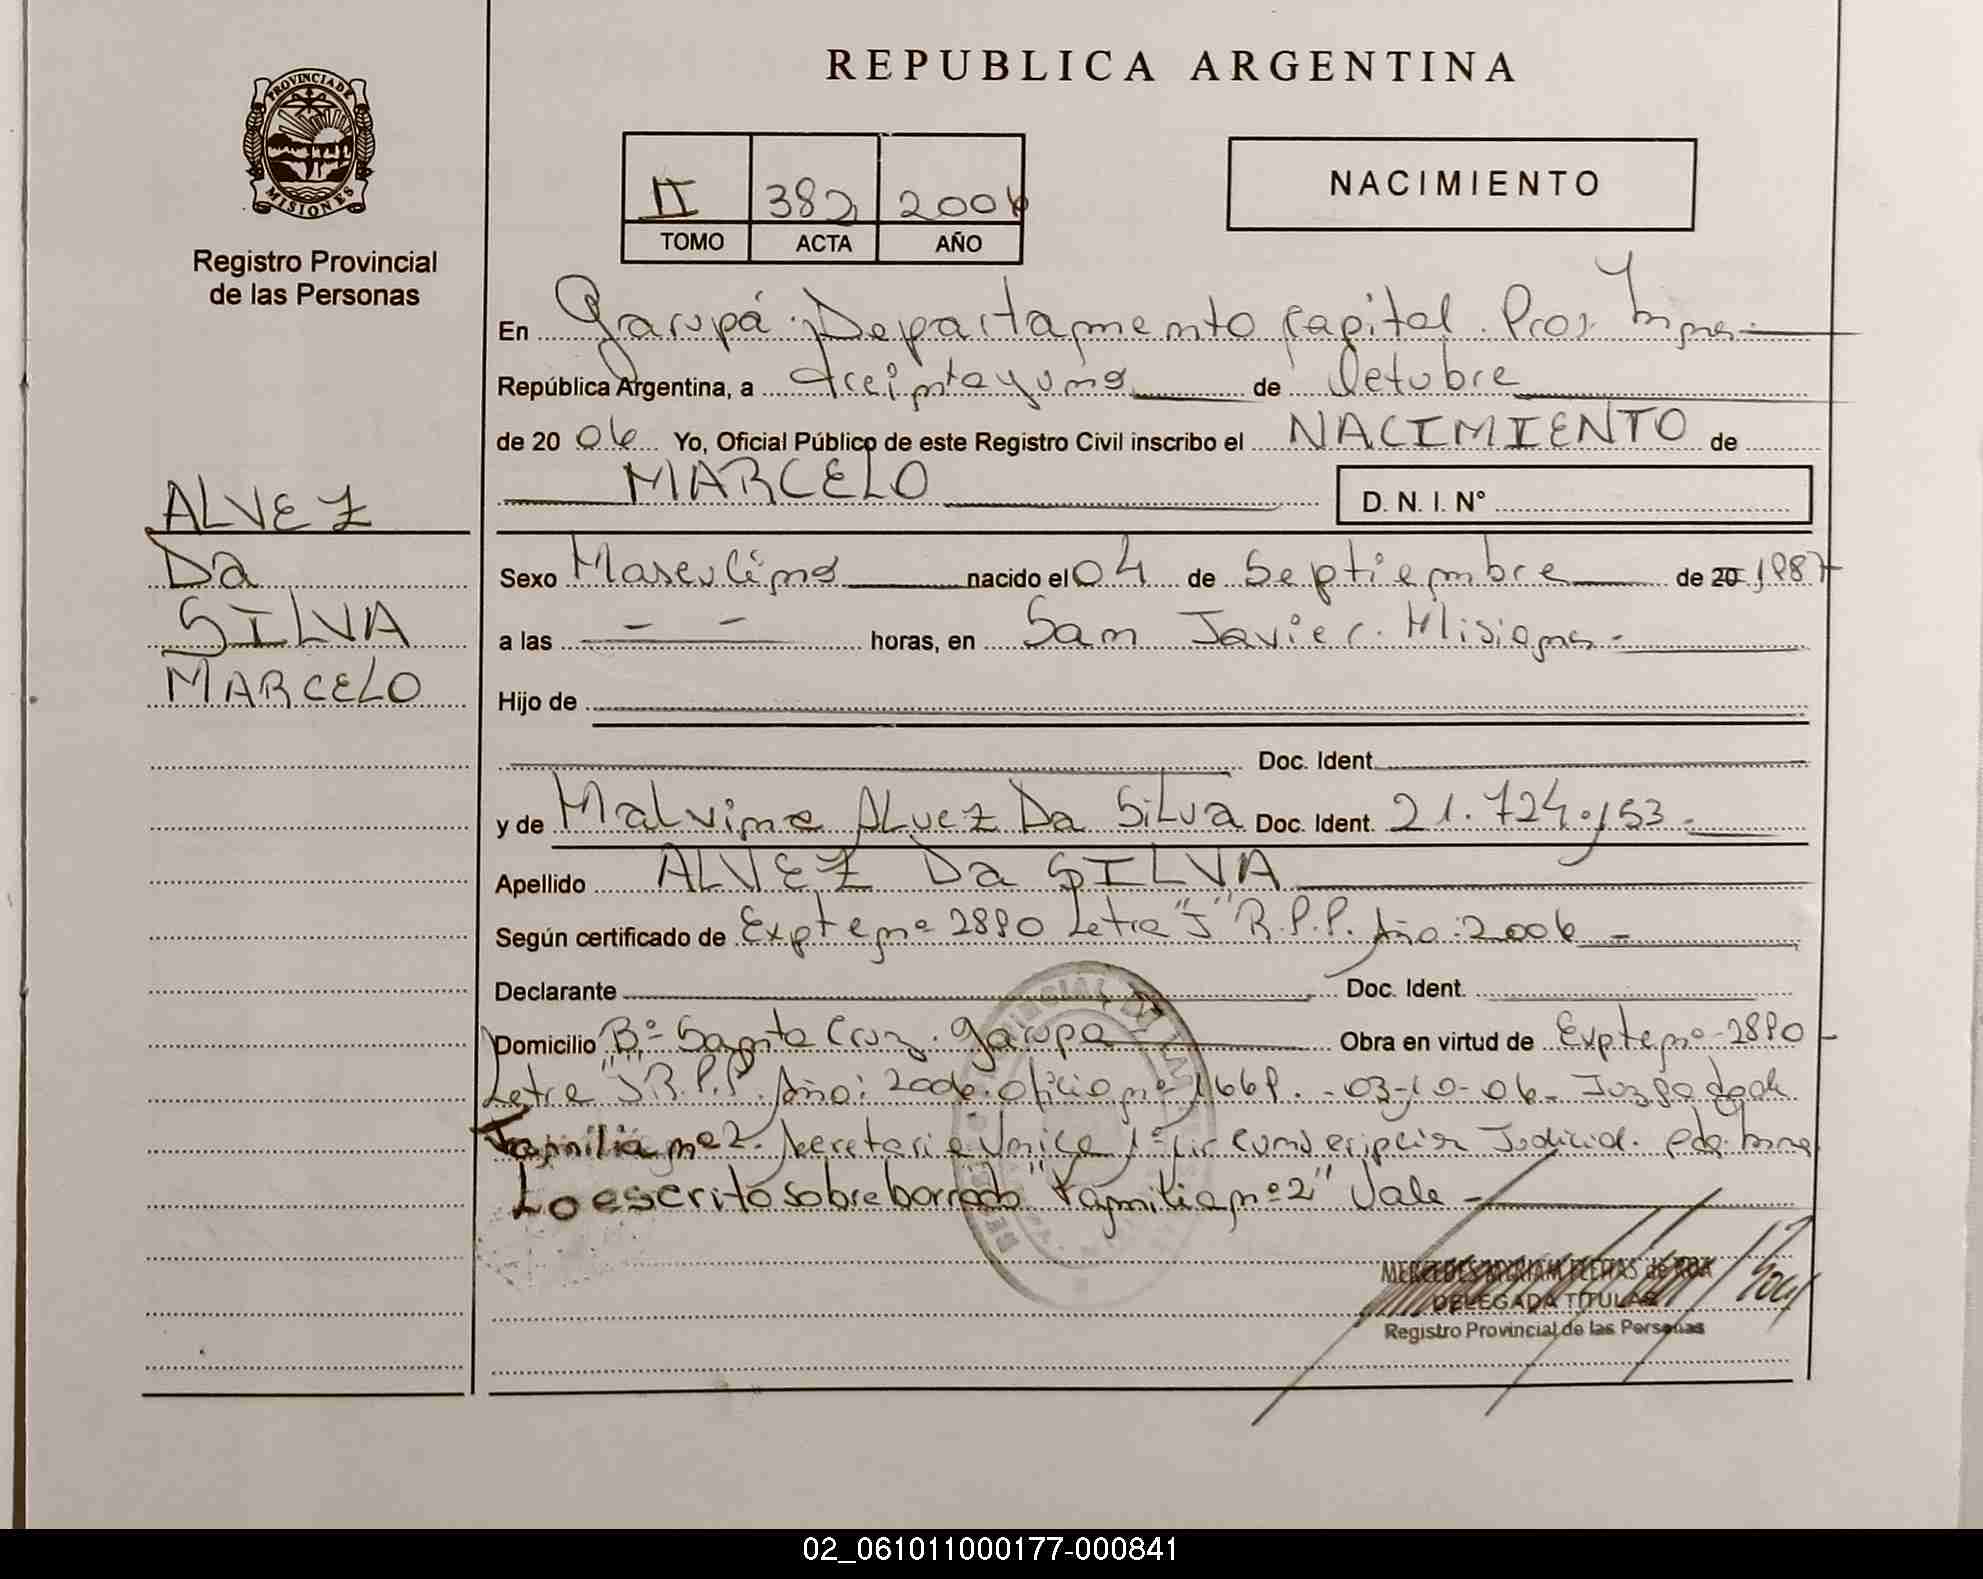 REPUBLICA ARGENTINA
PROVINCIA DE MISIONES
Registro Provincial
de las Personas
II 382 2006
TOMO ACTA AÑO
NACIMIENTO
En Garupá. Departamento Capital. Pcia.
República Argentina, a treintayuno de Octubre
de 20 06 Yo, Oficial Público de este Registro Civil inscribo el NACIMIENTO de
MARCELO D. N. I. N°
ALVEZ
Da
SILVA
MARCELO
Sexo Masculino nacido el 04 de Septiembre de 20 1987
a las - - horas, en San Javier. Misiones-
Hijo de
Doc. Ident.
y de Malvina Alvez Da Silva Doc. Ident. 21.724.153.-
Apellido ALVEZ Da SILVA
Según certificado de Expte nº 2890 Letra "J" R.P.P. Año: 2006 -
Declarante Doc. Ident.
Domicilio Bº Santa Cruz. Garupa Obra en virtud de Expte nº 2890 -
Letra "J" R.P.P. Año: 2006. Oficio nº 1669. - 03-10-06- Juzgado de
Familia nº 2. Secretaria Unica 1º Circunscripcion Judicial.
Lo escrito sobre borrado "Familia nº 2" Vale -
MERCEDES MYRIAM FLEITAS de ROA
DELEGADA TITULAR
Registro Provincial de las Personas
02_061011000177-000841